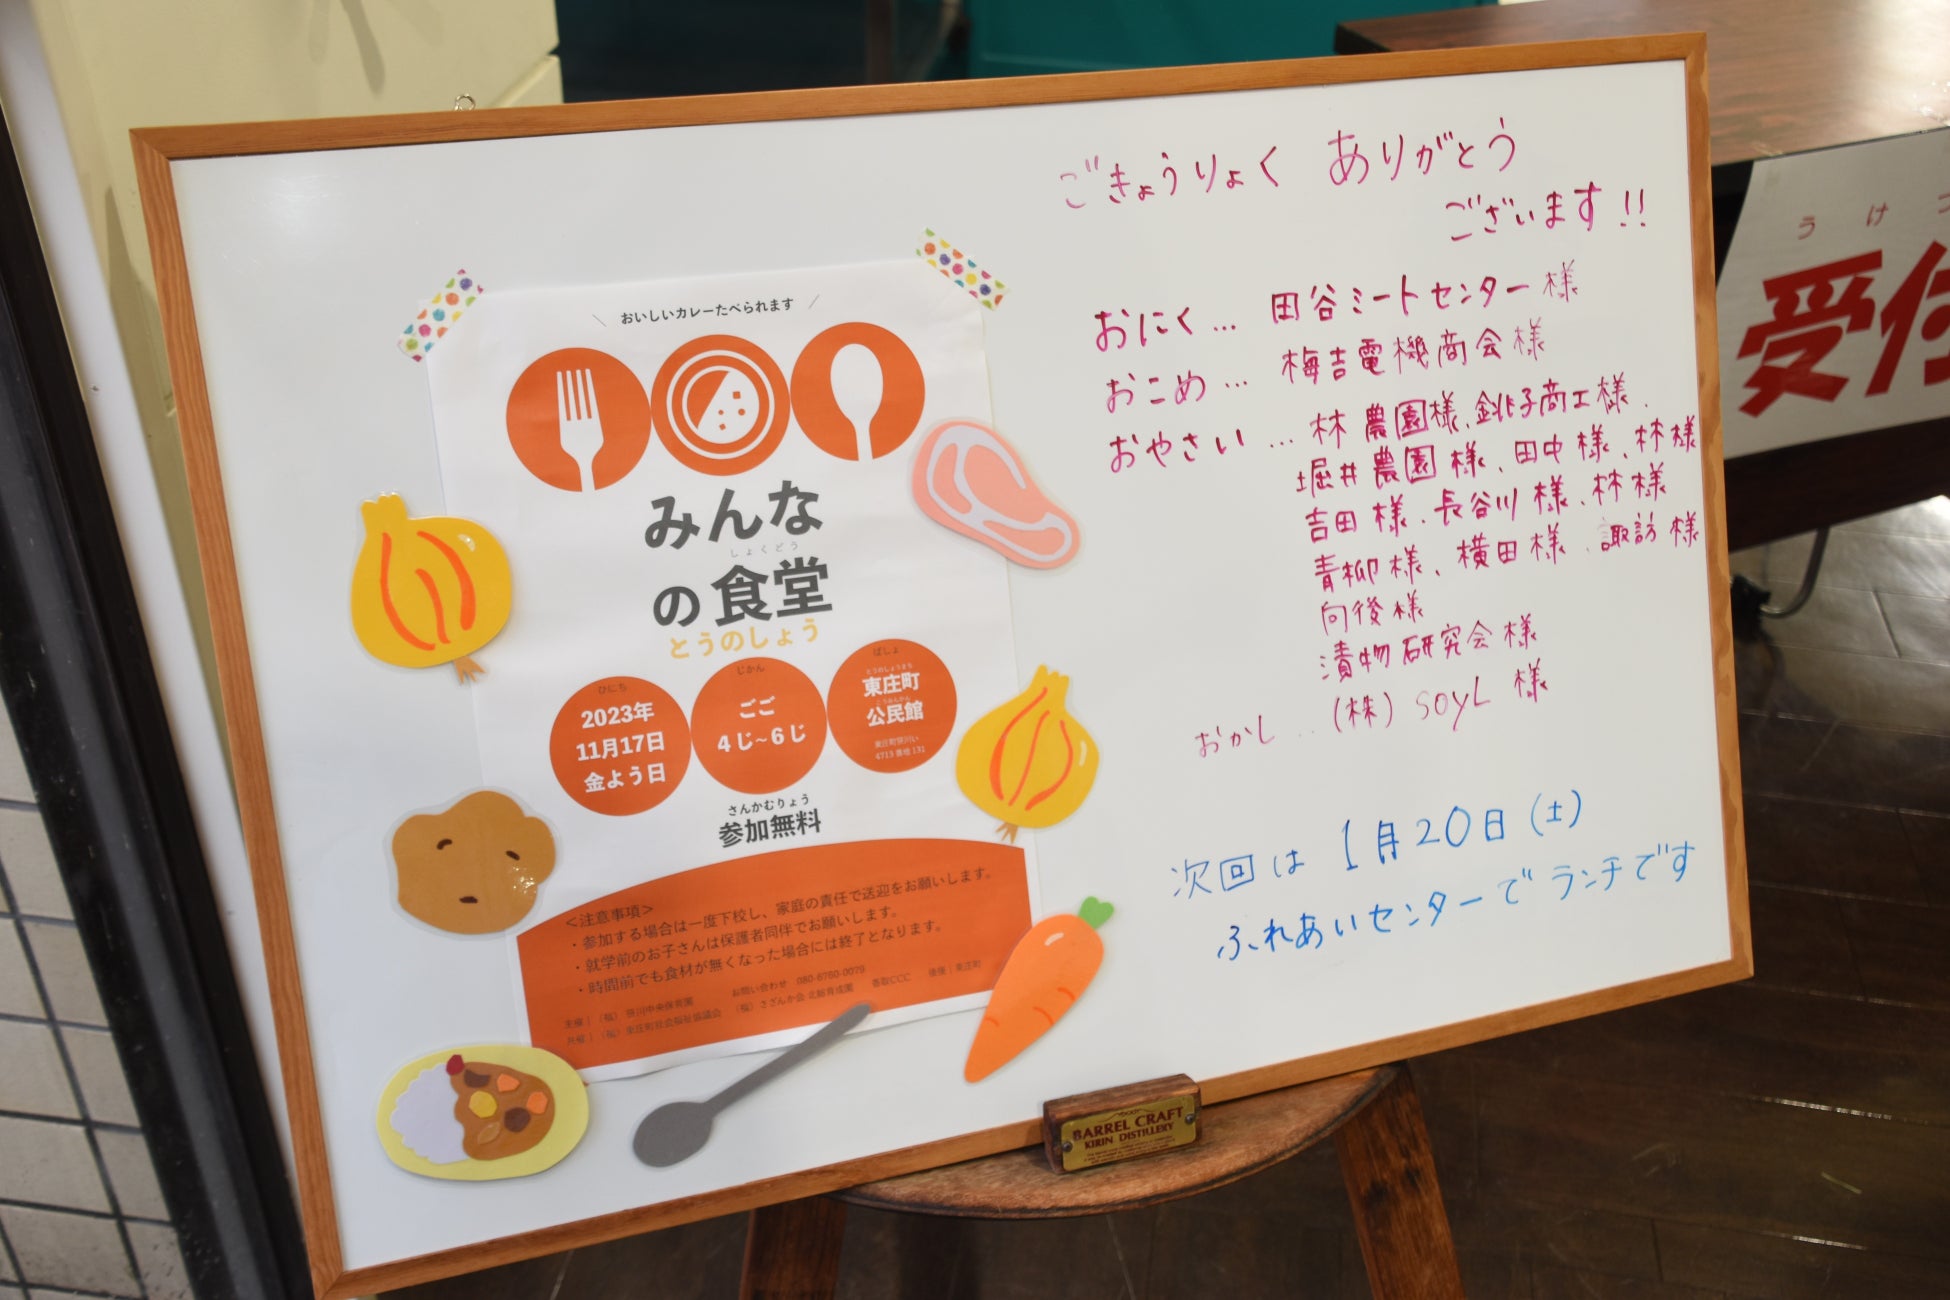 おいしいカレーたべられます
みんな
しょくどう
の食堂
とうのしょう
ひにち
2023年
11月17日
金よう日
じかん
ごご
4じ~6じ
ばしょ
とうのしょうまち
東庄町
こうみんかん
公民館
東庄町笹川い
4713番地131
さんかむりょう
参加無料
<注意事項>
・参加する場合は一度下校し、家庭の責任で送迎をお願いします。
・就学前のお子さんは保護者同伴でお願いします。
・時間前でも食材が無くなった場合には終了となります。
お問い合わせ 080-6760-0079
主催|(福)笹川中央保育園
共催|(福)東庄町社会福祉協議会 (福)さざんか会 北総育成園 香取CCC 後援|東庄町
ごきょうりょく ありがとう
ございます!!
おにく… 田谷ミートセンター様
おこめ… 梅吉電機商会様
おやさい… 林農園様、銚子商工様、
堀井農園様、田中様、林様
吉田様、長谷川様、林様
青柳様、横田様、諏訪様
向後様
漬物研究会様
おかし… (株)SOYL様
次回は 1月20日(土)
ふれあいセンターでランチです
BARREL CRAFT
KIRIN DISTILLERY
うけつ
受付